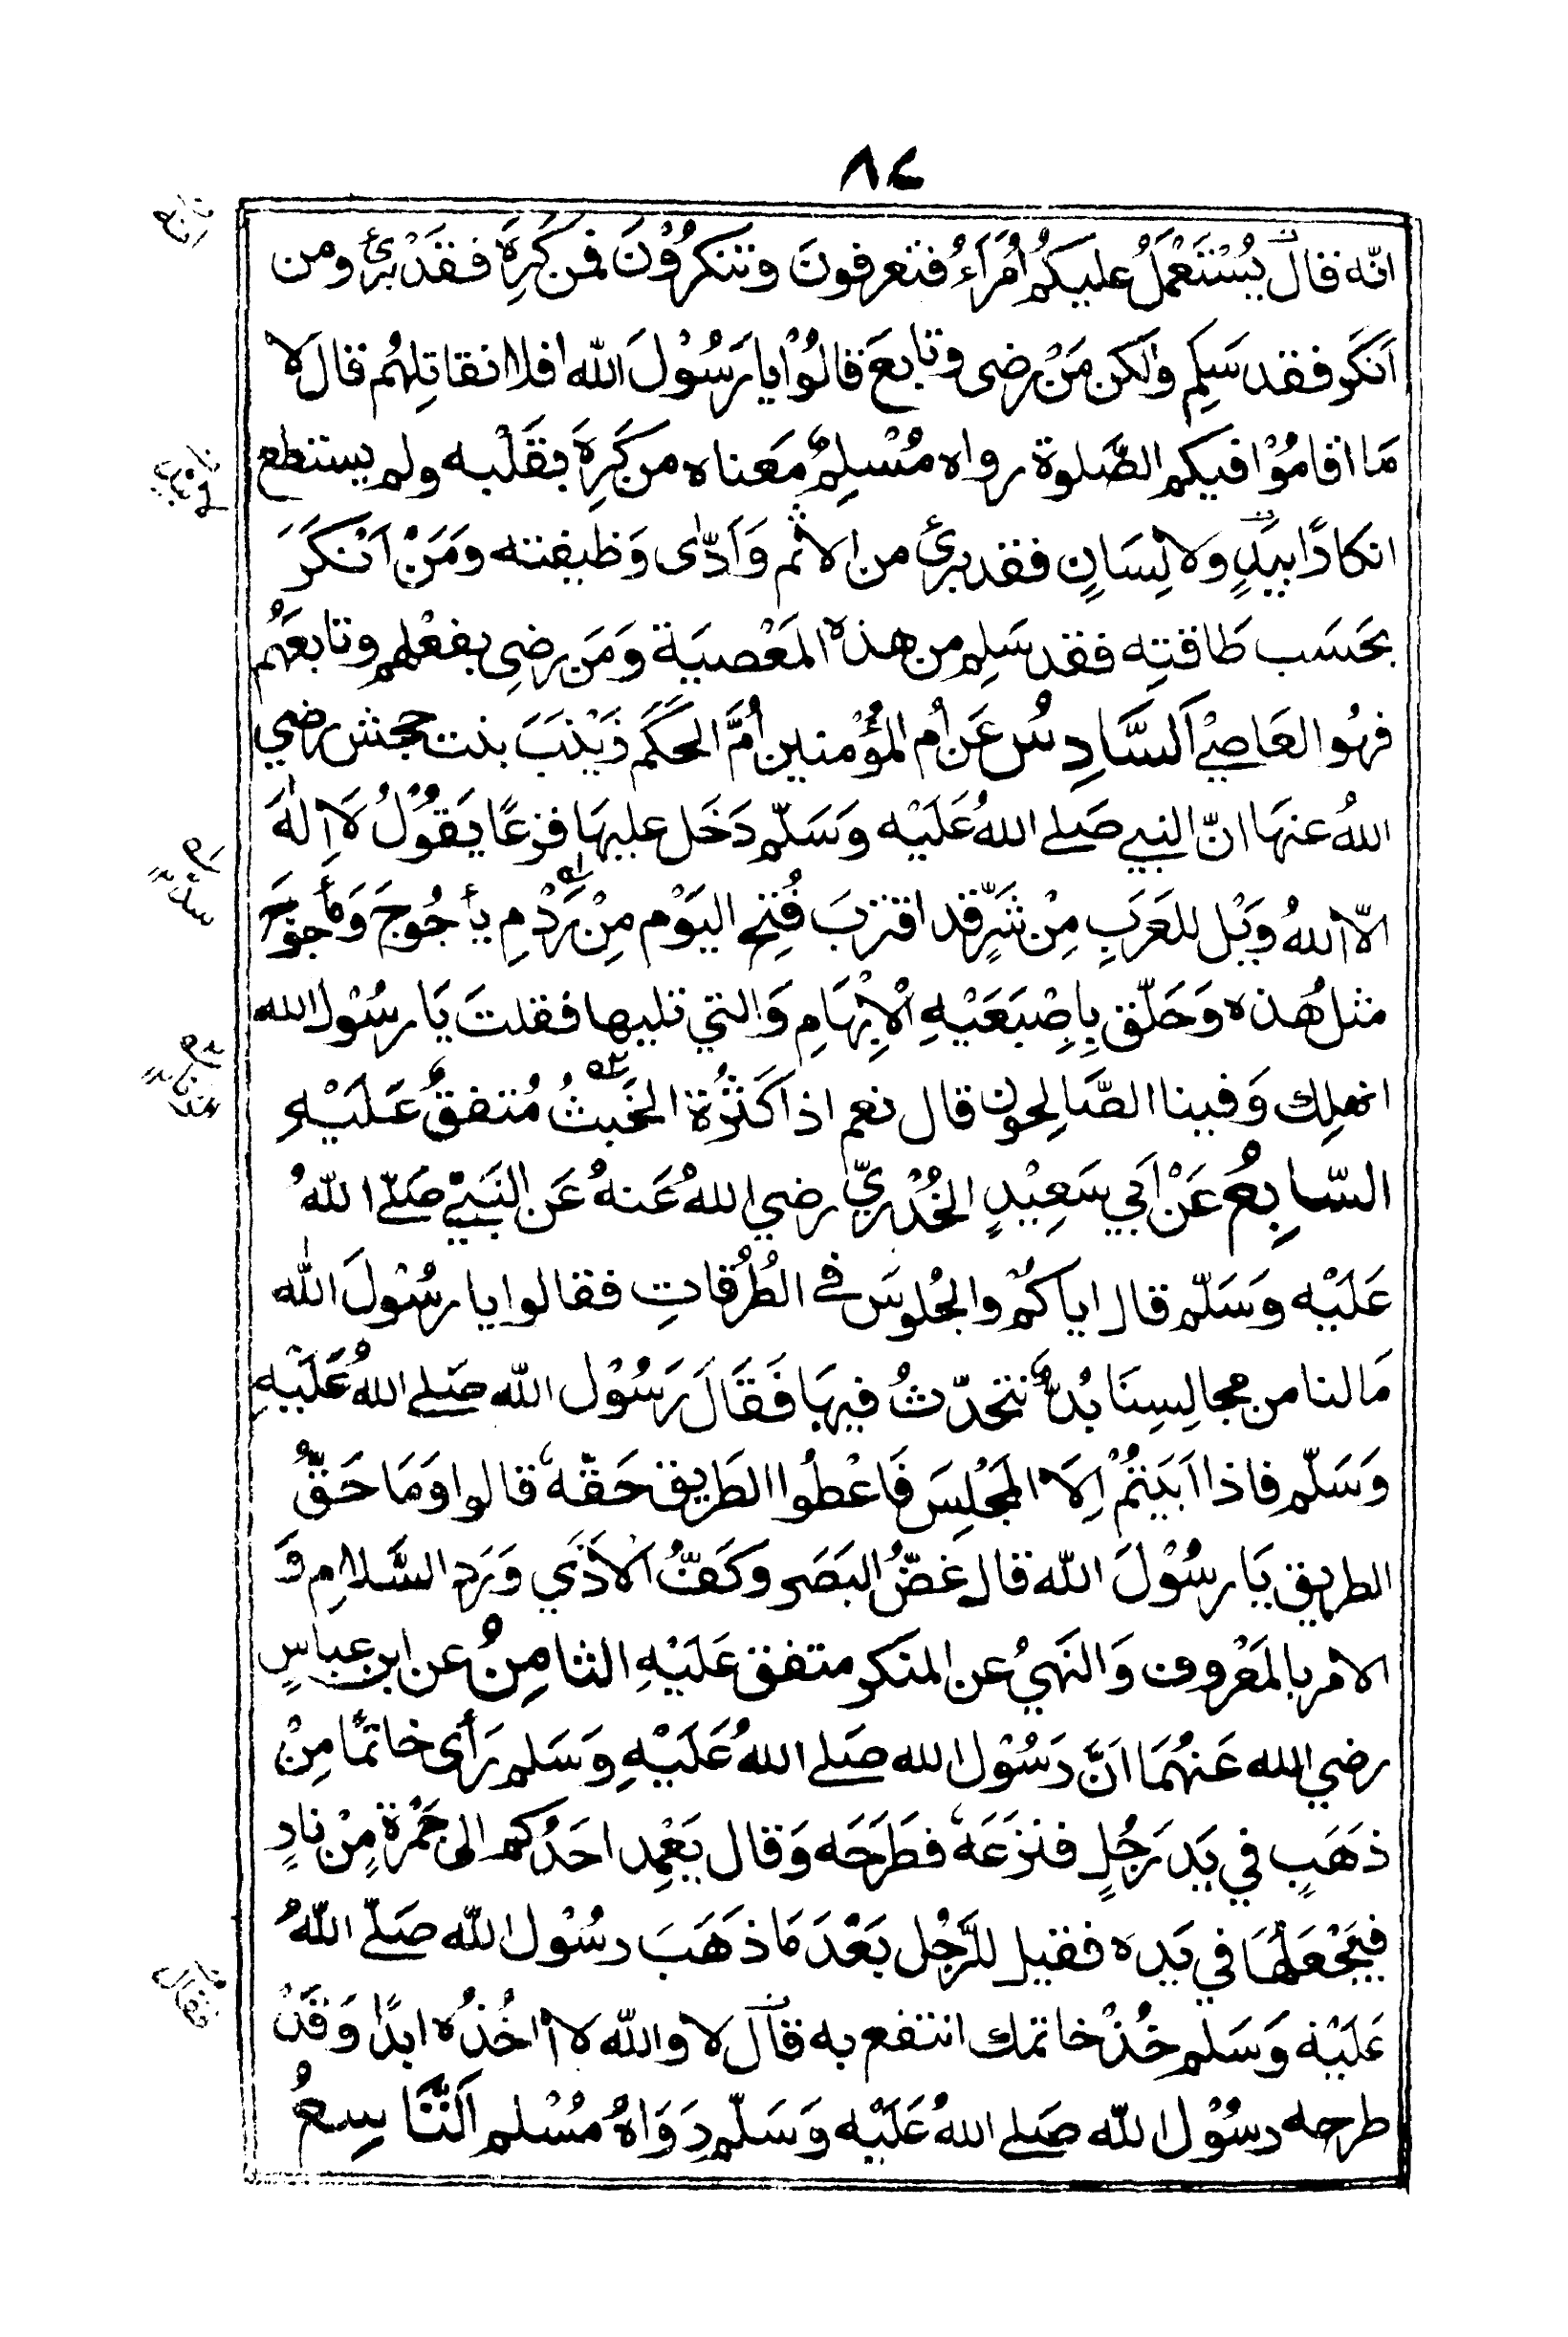 ٨٤
انّه قال يُسْتَعْمَلُ عليكُم أُمَرَاءُ فتعرفونَ وتنكرُوْنَ فمن كَرِهَ فقَدْ بَرِئَ ومن
اَنكَر فقد سَلِم ولكن مَنْ رضى وتابعَ قالُوْا يا رَسُوْلَ الله افلا نقاتِلهُم قال لا
مَا اقامُوْا فيكم الصَّلوة رواه مُسْلِمٌ مَعناه من كَرِهَ بقَلْبه ولم يستطع
انكارًا بيَدٍ ولا لِسَانٍ فقد برئ من الاثم وَاَدّى وَظيفته ومَنْ اَنْكَرَ
بحَسَب طَاقتِه فقد سَلِم من هذه المَعْصيَة وَمَن رضِى بفعْلهم وتابعَهُم
فهُو العَاصِيْ اَلسَّادِسُ عَن أُم المُؤْمنين أُمِّ الحَكَم زَيْنَبَ بنت جحش رضي
اللهُ عنهَا انّ النبي صَلے اللهُ عَلَيْه وَسَلّم دَخَل عليهَا فزعًا يَقُوْلُ لَا اِلٰهَ
الّا اللهُ وَيْل للعَرَبِ مِنْ شَرٍّ قد اقتربَ فُتِح اليَوْم مِنْ رَدْمِ يأجُوجَ وَمأجوجَ
مثلُ هٰذه وَحَلّق بِاِصْبَعَيْهِ الْاِبْهَامِ وَالتي تليها فقلتَ يَا رسُوْل الله
انهلِك وَفينا الصَّالِحون قال نعم اذا كَثُرَة الخَبثُ مُتفقٌ عَلَيْهِ
السّابِعُ عَنْ اَبي سَعِيْدٍ الخُدْريّ رضي اللهُ عَنهُ عَن النَبيّ صَلّے اللّهُ
عَلَيْه وَسَلّم قال اياكُم والجُلوسَ فے الطُرُقاتِ فقالوا يا رسُوْلَ الله
مَا لنا من مجالِسِنَا بُدٌّ نتحدّثُ فيهَا فَقَالَ رَسُوْل الله صَلے اللهُ عَلَيْهِ
وَسَلّم فاذا اَبَيتُمْ اِلّا المَجْلِسَ فَاعْطُوا الطَريق حَقّهٗ قالوا وَمَا حَقُّ
الطريق يَا رسُوْلَ اللّه قال غَضُّ البَصَر وكَفُّ الاَذَي وَرَدِ السَّلامِ وَ
الامر بالمَعْروف وَالنَهيُ عن المنكر متفق عَلَيْهِ الثامِنُ عن ابن عباسٍ
رضي الله عَنهُمَا اَنَّ رَسُوْل الله صَلے اللهُ عَلَيْهِ وَسَلم رَأى خاتمًا مِنْ
ذهَبٍ في يَد رَجُلٍ فنزَعَهٗ فطَرَحَه وَقال يَعْمِد احَدُكم الى جَمْرَةٍ مِنْ نارٍ
فيَجْعَلُهَا في يَده فقيل للرَّجُل بَعْدَ مَا ذهَبَ رسُوْل الله صَلّے اللّهُ
عَلَيْه وَسَلم خُذْ خاتمك انتفع به قال لا والله لا اٰخُذُه ابدًا وَقَدْ
طرحه رسُوْل اللّه صَلے اللهُ عَلَيْه وَسَلّم رَوَاهُ مُسْلم اَلتَّاسِعُ